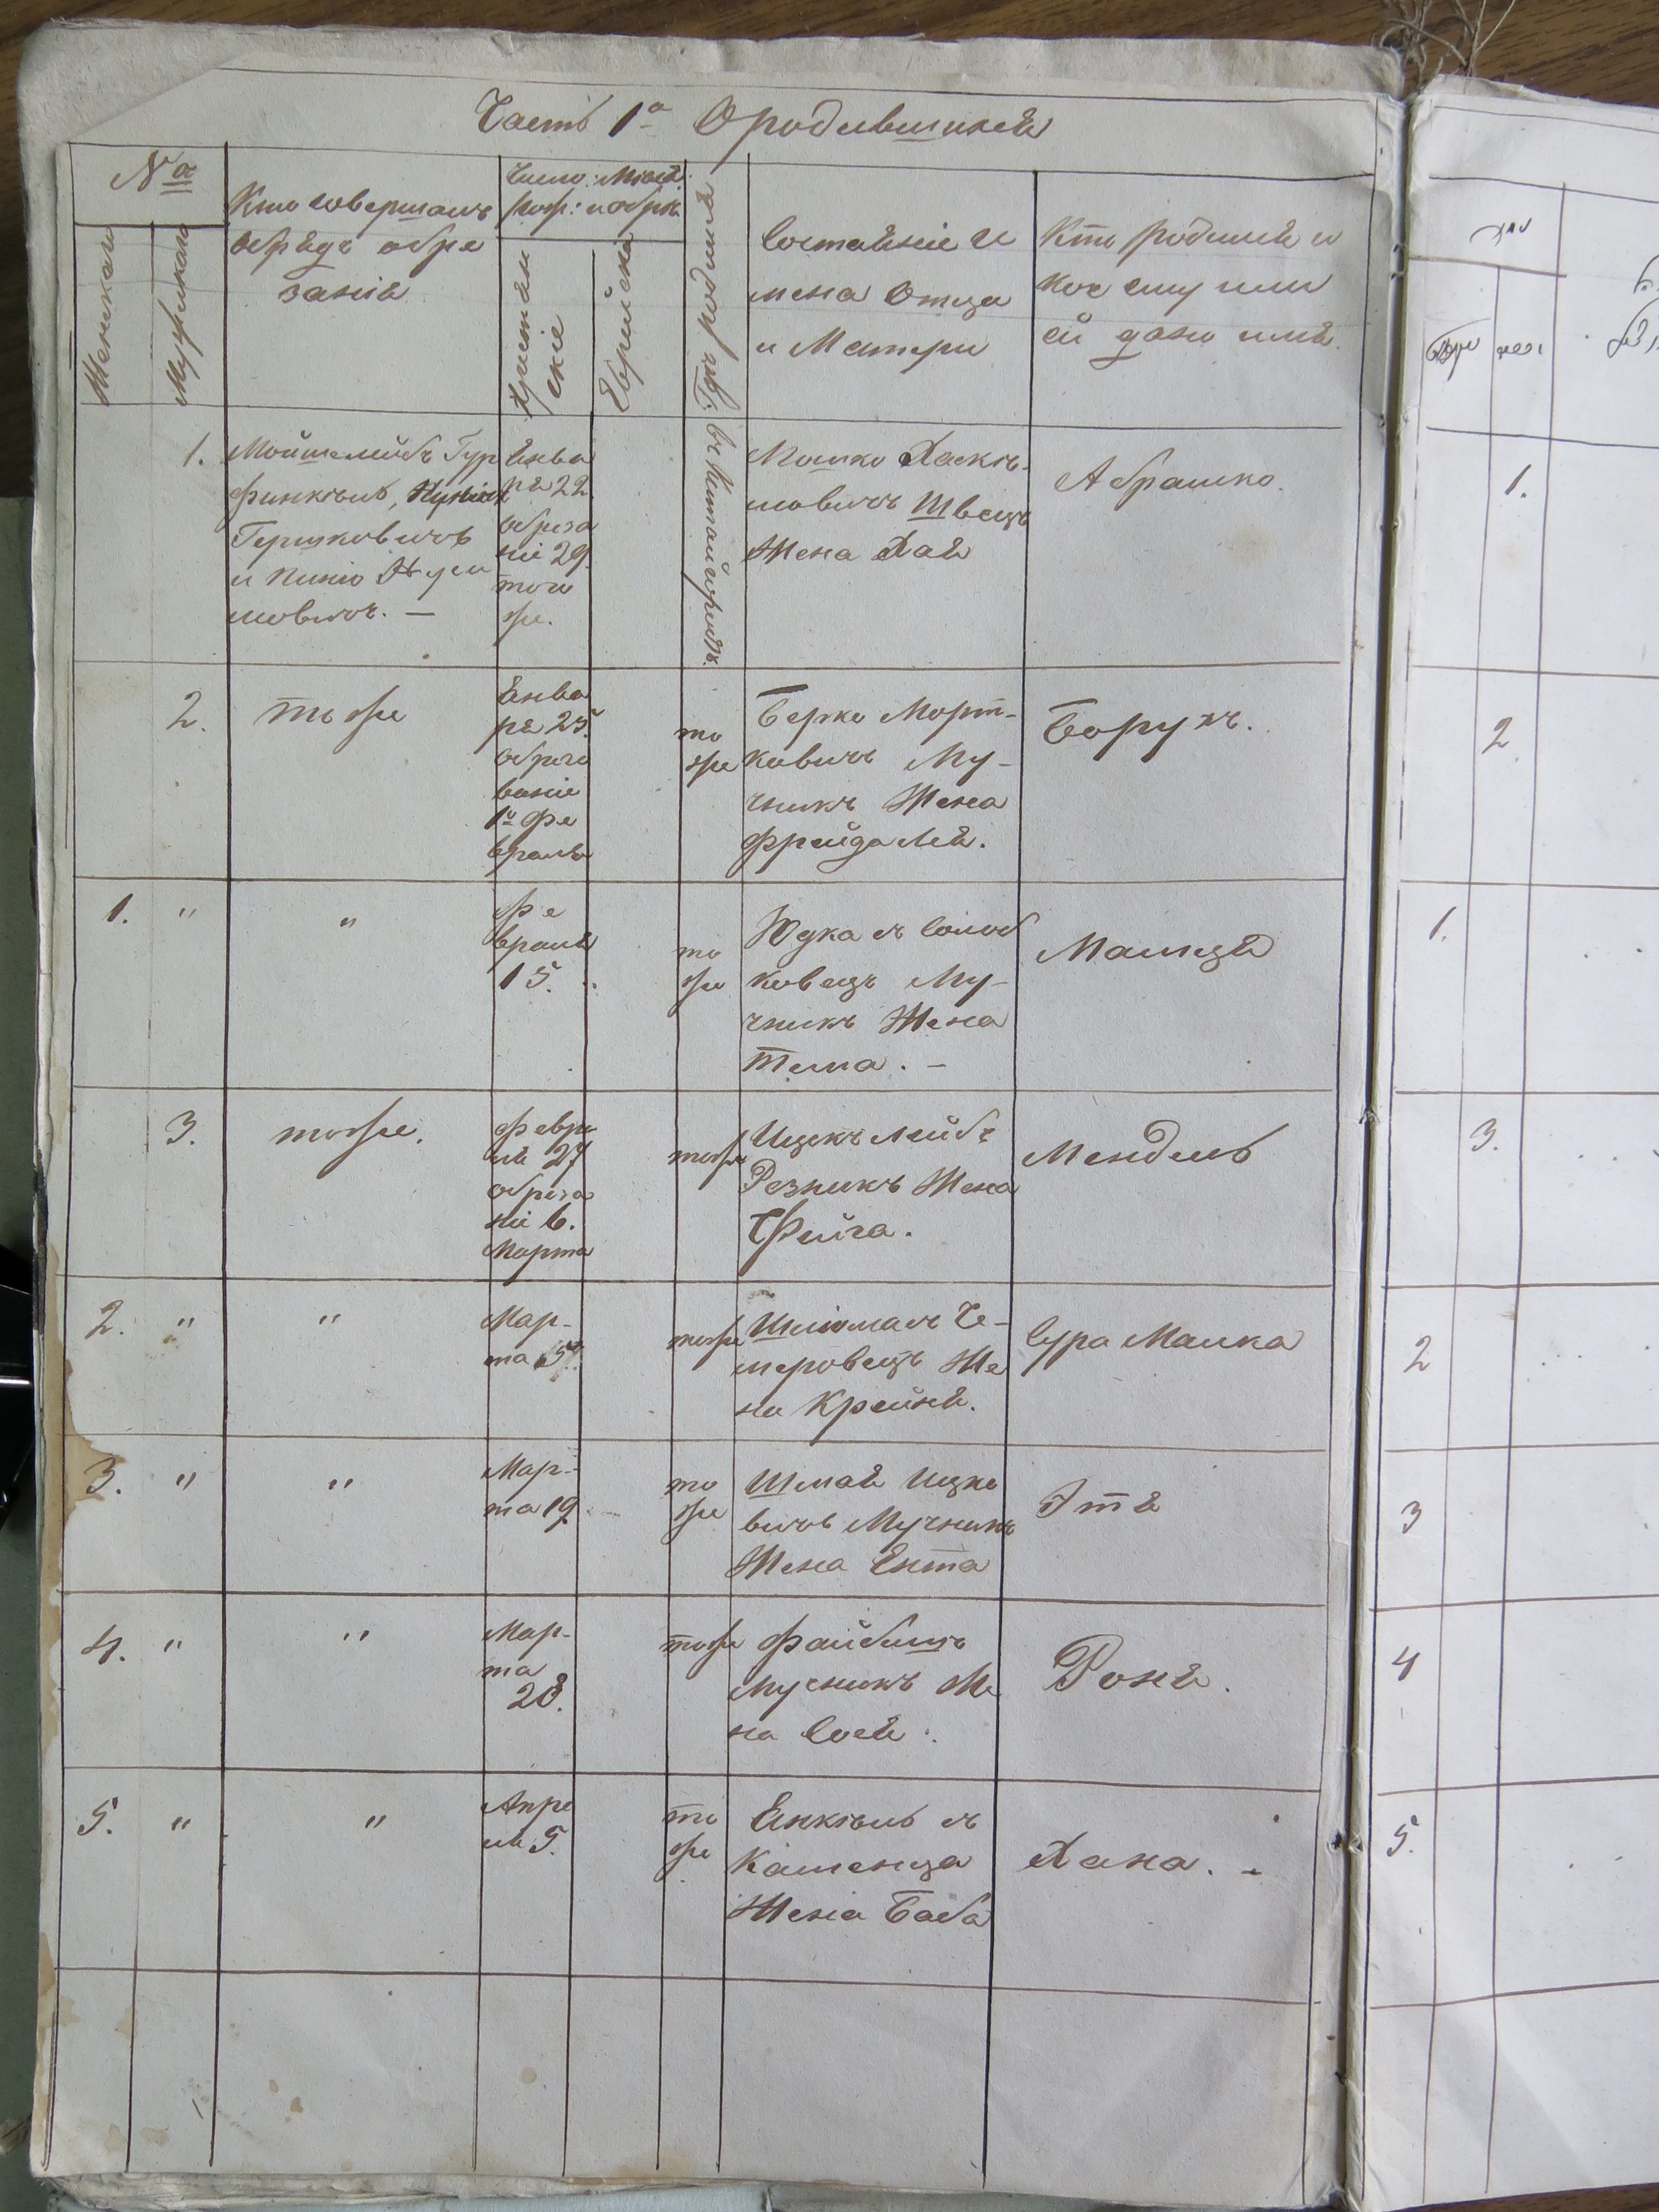 Часть 1ª О родившихся
№ª
Женскаго
Мужскаго
Кто совершалъ
обрядъ обре
занія
Число: Мѣся:
рож: и обрѣз.
Христіан
скіе
Еврейскіе
Гдѣ родился
Состояніе и
мена Отца
и Матери
Кто родился и
кое ему или
ей дано имя.
1.
Мойшелейбъ Гур
финкель,
Гершковичъ
и Пинio
мовичъ. —
Янва
ря 22.
обреза
ніе 29.
того
же.
въ Китайгородѣ.
Мошко Хаскѣ-
левичъ Швецъ
Жена Хая
Абрашко.
2.
тоже
Янва
ря 25.
обрезо
ваніе
1º фе
враля
то
же
Берко Морт-
ковичъ Му-
чникъ Жена
Фрейда Лея.
Борухъ.
1. "
"
фе
враля
15.
то
же
Юдка съ Солоб
ковецъ Му-
чникъ Жена
Тема. —
Малиця
3.
тоже.
февра
ля 27
обреза
ніе 6.
Марта
тоже
Ицекъ Лейбъ
Резникъ Жена
Фейга.
Мендель
2. "
"
Мар-
та 5.
тоже
Шліома съ Че-
меровецъ Же
на Крейня.
Сура Малка
3. "
"
Мар-
та 19.
то
же
Шмая Ицко
вичъ Мучникъ
Жена Ента
Этя
4. "
"
Мар-
та
28.
тоже
Файбишъ
Мучникъ Же
на Сося.
Роня.
5. "
"
Апре
ля 5.
то
же
Янкель съ
Каменца
Жена Баба
Хана. –
1.
2
1.
3.
2
3
4
5.